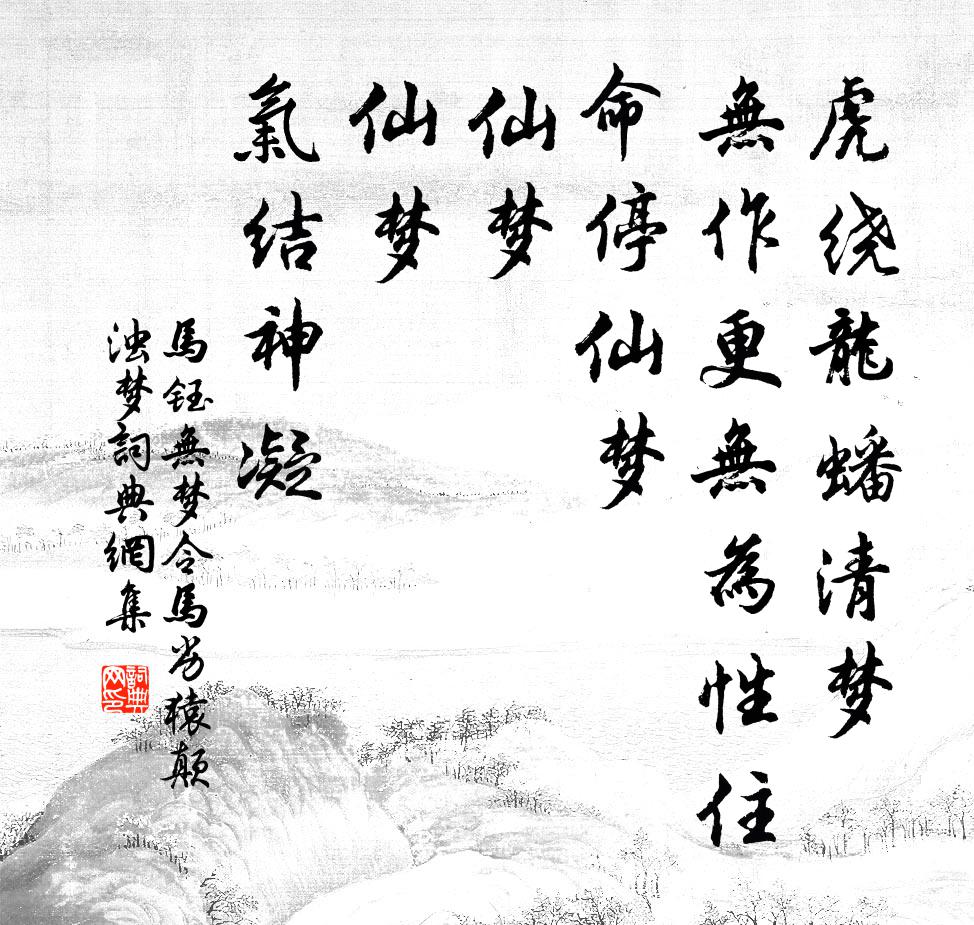 虎绕龍蟠清梦
無作更無為性住
命停仙梦
仙梦
仙梦
氣结神凝
馬钰無梦令馬劣猿颠
浊梦詞典網集
詞典网印